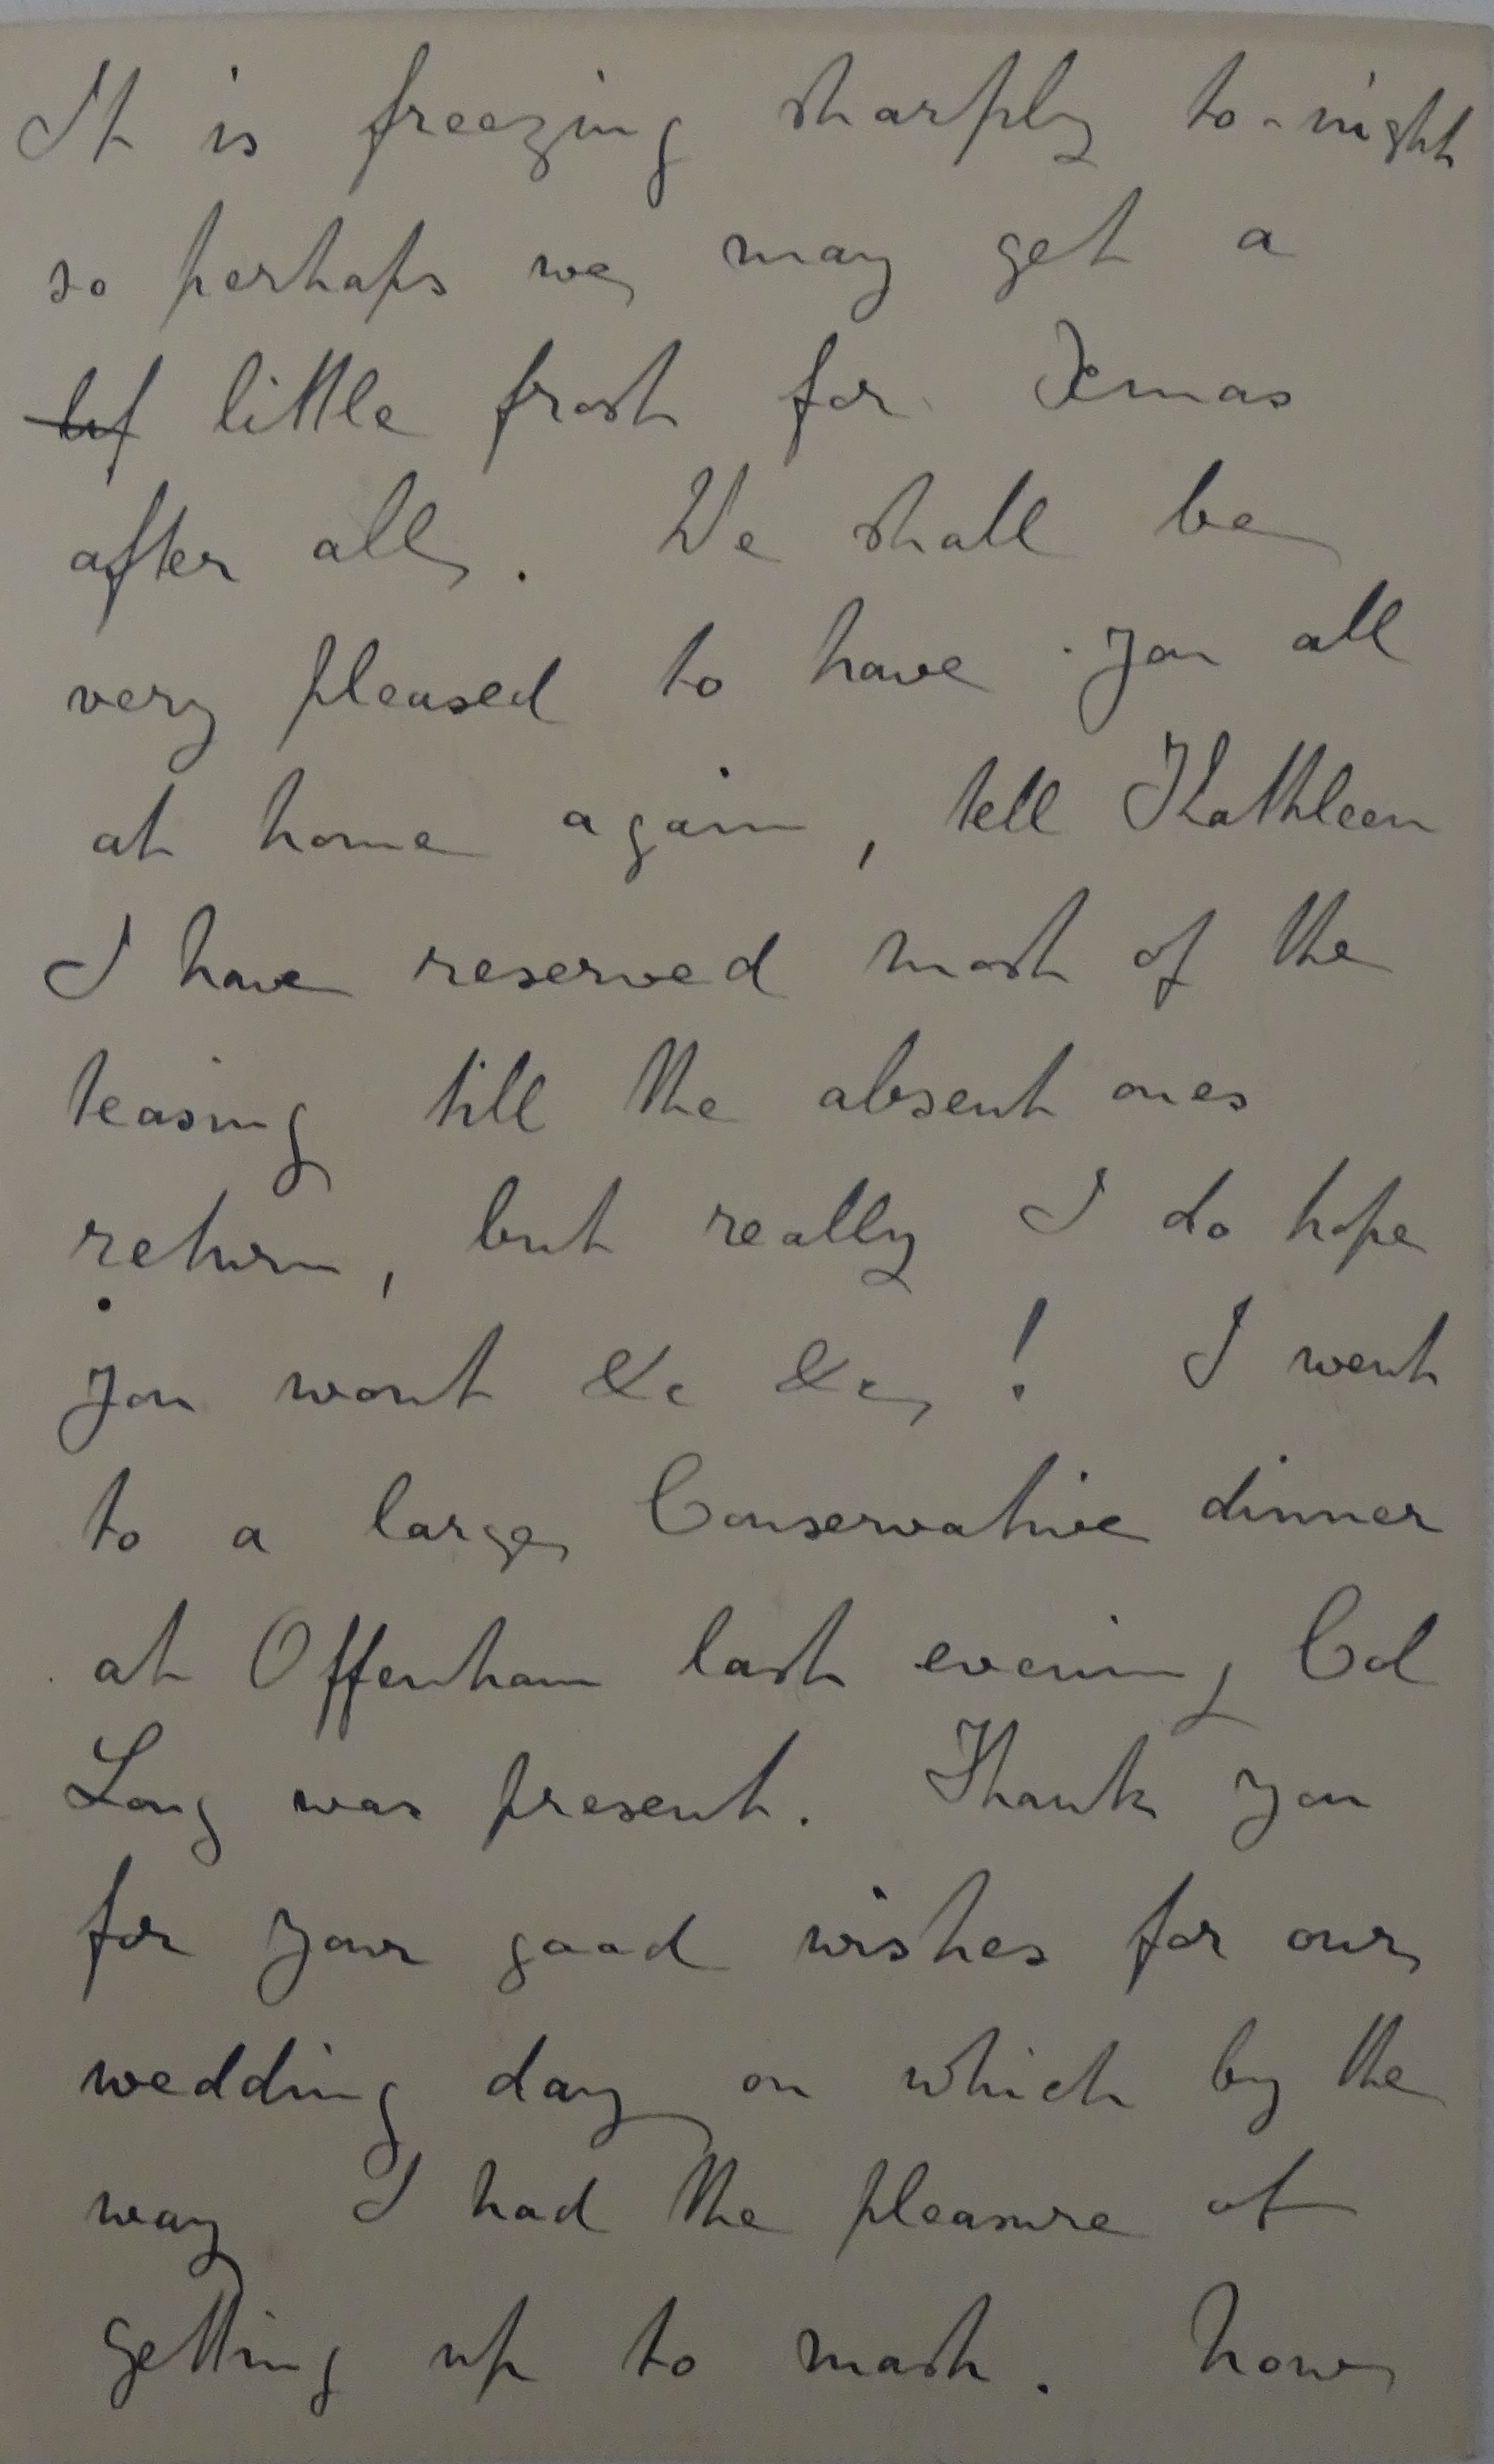 It is freezing sharply to-night
so perhaps we may get a
little frost for Xmas
after all. We shall be
very pleased to have you all
at home again, tell Kathleen
I have reserved most of the
teasing till the absent ones
return, but really I do hope
you wont &c &c! I went
to a large Conservative dinner
at Offenham last evening Col
Long was present. Thank you
for your good wishes for our
wedding day on which by the
way I had the pleasure of
getting up to mash. how